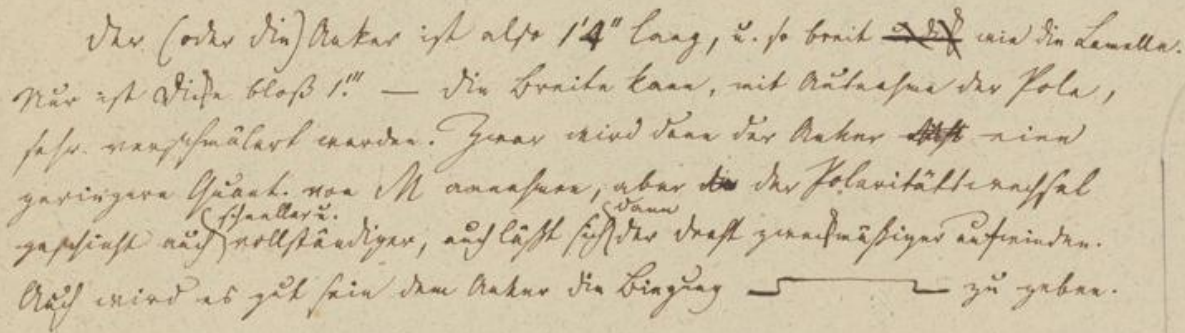 Der (oder die) Anker ist also 1'4" lang, u. so breit u. dick wie die Lamelle.
Nur ist Dicke bloß 1.''' — die Breite kann, mit Ausnahme der Pole,
sehr verschmälert werden. Zwar wird dann der Anker eine
geringere Quant. von M annehmen, aber die der Polaritätswechsel
geschieht auch schneller u. vollständiger, auch läßt sich dann der Draht zweckmäßiger aufwinden.
Auch wird es gut sein dem Anker die Biegung zu geben.